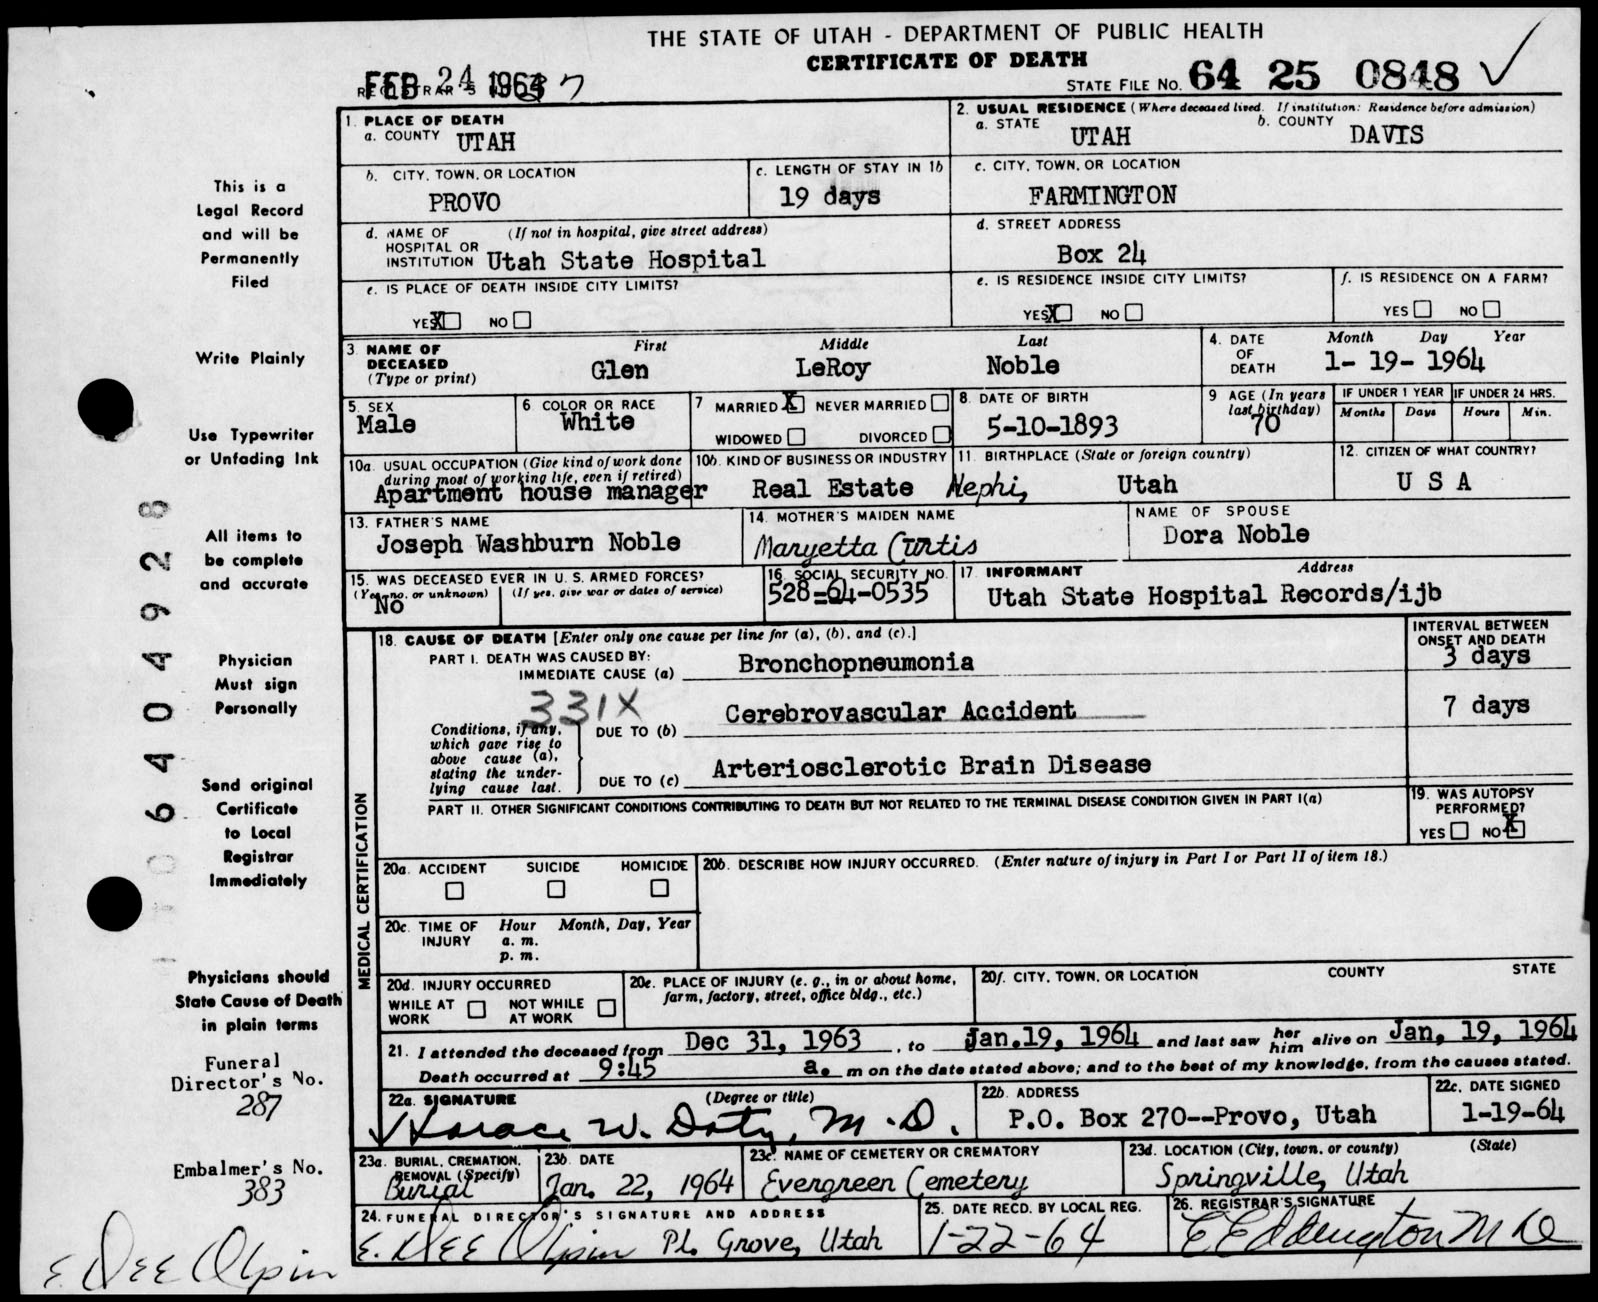 THE STATE OF UTAH - DEPARTMENT OF PUBLIC HEALTH
CERTIFICATE OF DEATH
FEB 24 1964
STATE FILE NO. 64 25 0848
1. PLACE OF DEATH
a. COUNTY UTAH
2. USUAL RESIDENCE (Where deceased lived. If institution: Residence before admission)
a. STATE UTAH b. COUNTY DAVIS
b. CITY, TOWN, OR LOCATION PROVO
c. LENGTH OF STAY IN 1b 19 days
c. CITY, TOWN, OR LOCATION FARMINGTON
d. NAME OF HOSPITAL OR INSTITUTION (If not in hospital, give street address) Utah State Hospital
d. STREET ADDRESS Box 24
e. IS PLACE OF DEATH INSIDE CITY LIMITS?
YES X NO
e. IS RESIDENCE INSIDE CITY LIMITS?
YES X NO
f. IS RESIDENCE ON A FARM?
YES NO
3 NAME OF DECEASED (Type or print)
First Middle Last
Glen LeRoy Noble
4. DATE OF DEATH
Month Day Year
1- 19- 1964
5. SEX Male
6 COLOR OR RACE White
7 MARRIED X NEVER MARRIED
WIDOWED DIVORCED
8. DATE OF BIRTH 5-10-1893
9 AGE (In years last birthday) 70
IF UNDER 1 YEAR IF UNDER 24 HRS.
Months Days Hours Min.
10a. USUAL OCCUPATION (Give kind of work done during most of working life, even if retired)
Apartment house manager
10b. KIND OF BUSINESS OR INDUSTRY
Real Estate
11. BIRTHPLACE (State or foreign country)
Nephi, Utah
12. CITIZEN OF WHAT COUNTRY?
U S A
13. FATHER'S NAME
Joseph Washburn Noble
14. MOTHER'S MAIDEN NAME
Maryetta Curtis
NAME OF SPOUSE
Dora Noble
15. WAS DECEASED EVER IN U. S. ARMED FORCES?
(Yes, no, or unknown) (If yes, give war or dates of service)
No
16. SOCIAL SECURITY NO.
528-64-0535
17 INFORMANT Address
Utah State Hospital Records/ijb
MEDICAL CERTIFICATION
18. CAUSE OF DEATH [Enter only one cause per line for (a), (b), and (c).]
INTERVAL BETWEEN ONSET AND DEATH
PART I. DEATH WAS CAUSED BY:
IMMEDIATE CAUSE (a) Bronchopneumonia 3 days
331X
Conditions, if any, which gave rise to above cause (a), stating the underlying cause last.
DUE TO (b) Cerebrovascular Accident 7 days
DUE TO (c) Arteriosclerotic Brain Disease
PART II. OTHER SIGNIFICANT CONDITIONS CONTRIBUTING TO DEATH BUT NOT RELATED TO THE TERMINAL DISEASE CONDITION GIVEN IN PART I(a)
19. WAS AUTOPSY PERFORMED?
YES NO X
20a. ACCIDENT SUICIDE HOMICIDE
20b. DESCRIBE HOW INJURY OCCURRED. (Enter nature of injury in Part I or Part II of item 18.)
20c. TIME OF INJURY Hour Month, Day, Year
a. m.
p. m.
20d. INJURY OCCURRED
WHILE AT WORK NOT WHILE AT WORK
20e. PLACE OF INJURY (e. g., in or about home, farm, factory, street, office bldg., etc.)
20f. CITY, TOWN, OR LOCATION COUNTY STATE
21. I attended the deceased from Dec 31, 1963, to Jan.19, 1964 and last saw her him alive on Jan, 19, 1964
Death occurred at 9:45 a. m on the date stated above; and to the best of my knowledge, from the causes stated.
22a. SIGNATURE (Degree or title)
Horace W. Doty, M.D.
22b. ADDRESS
P.O. Box 270--Provo, Utah
22c. DATE SIGNED
1-19-64
23a. BURIAL, CREMATION, REMOVAL (Specify)
Burial
23b DATE
Jan. 22, 1964
23c. NAME OF CEMETERY OR CREMATORY
Evergreen Cemetery
23d. LOCATION (City, town, or county) (State)
Springville, Utah
24. FUNERAL DIRECTOR'S SIGNATURE AND ADDRESS
E. DEE Olpin Pl. Grove, Utah
25. DATE RECD. BY LOCAL REG.
1-22-64
26. REGISTRAR'S SIGNATURE
E Eddington M D
This is a
Legal Record
and will be
Permanently
Filed
Write Plainly
Use Typewriter
or Unfading Ink
All items to
be complete
and accurate
Physician
Must sign
Personally
Send original
Certificate
to Local
Registrar
Immediately
Physicians should
State Cause of Death
in plain terms
Funeral
Director's No.
287
Embalmer's No.
383
E. DEE Olpin